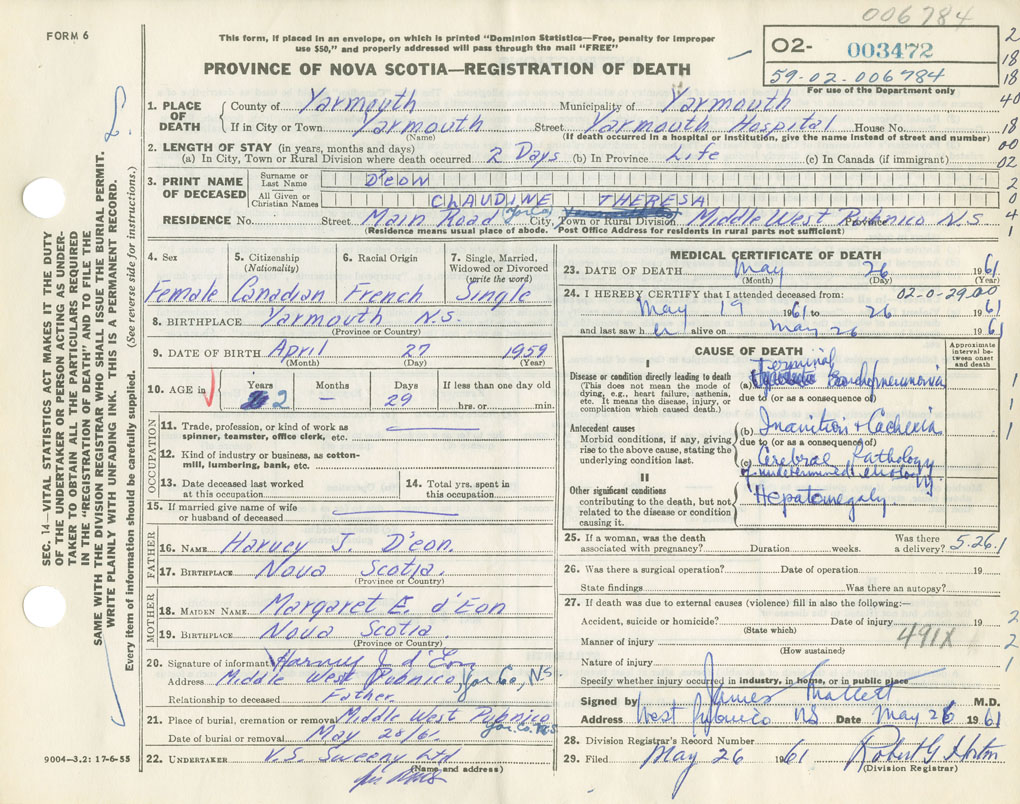 006784
FORM 6
This form, if placed in an envelope, on which is printed "Dominion Statistics—Free, penalty for improper
use $50," and properly addressed will pass through the mail "FREE"
PROVINCE OF NOVA SCOTIA—REGISTRATION OF DEATH
02- 003472
59-02-006784
For use of the Department only
1. PLACE OF DEATH County of Yarmouth Municipality of Yarmouth
If in City or Town Yarmouth Street Yarmouth Hospital House No.
(Name) (If death occurred in a hospital or institution, give the name instead of street and number)
2. LENGTH OF STAY (in years, months and days)
(a) In City, Town or Rural Division where death occurred 2 Days (b) In Province Life (c) In Canada (if immigrant)
3. PRINT NAME OF DECEASED
Surname or Last Name D'eon
All Given or Christian Names CLAUDINE THERESA
RESIDENCE No. Street Main Road Yar Co City, Town or Rural Division Middle West Pubnico Province N.S.
(Residence means usual place of abode. Post Office Address for residents in rural parts not sufficient)
4. Sex
Female
5. Citizenship (Nationality)
Canadian
6. Racial Origin
French
7. Single, Married, Widowed or Divorced (write the word)
Single
8. BIRTHPLACE Yarmouth N.S.
(Province or Country)
9. DATE OF BIRTH April 27 1959
(Month) (Day) (Year)
10. AGE in Years Months Days If less than one day old
2 — 29 hrs. or min.
OCCUPATION
11. Trade, profession, or kind of work as spinner, teamster, office clerk, etc.
12. Kind of industry or business, as cotton-mill, lumbering, bank, etc.
13. Date deceased last worked at this occupation
14. Total yrs. spent in this occupation
15. If married give name of wife or husband of deceased
FATHER
16. NAME Harvey J. D'eon.
17. BIRTHPLACE Nova Scotia.
(Province or Country)
MOTHER
18. MAIDEN NAME Margaret E. d'Eon
19. BIRTHPLACE Nova Scotia.
(Province or Country)
20. Signature of informant Harvey J. d'Eon
Address Middle West Pubnico, Yar Co, N.S.
Relationship to deceased Father.
21. Place of burial, cremation or removal Middle West Pubnico
Yar. Co. N.S
Date of burial or removal May 28/61.
22. UNDERTAKER V.S. Sweeny Ltd
(Name and address)
9004—3.2: 17-6-55
MEDICAL CERTIFICATE OF DEATH
23. DATE OF DEATH May 26 1961
(Month) (Day) (Year)
24. I HEREBY CERTIFY that I attended deceased from: 02-0-29.00
May 19 1961 to 26 1961
and last saw her alive on May 26 1961
CAUSE OF DEATH
Approximate interval between onset and death
I
Disease or condition directly leading to death
(This does not mean the mode of dying, e.g., heart failure, asthenia, etc. It means the disease, injury, or complication which caused death.)
Terminal
(a) Bronchopneumonia
due to (or as a consequence of)
Antecedent causes
Morbid conditions, if any, giving rise to the above cause, stating the underlying condition last.
(b) Inanition + Cachexia
due to (or as a consequence of)
(c) Cerebral Pathology
of undetermined etiology
II
Other significant conditions
contributing to the death, but not related to the disease or condition causing it.
Hepatomegaly
25. If a woman, was the death associated with pregnancy? Duration weeks. Was there a delivery? 5.26.1
26. Was there a surgical operation? Date of operation 19
State findings Was there an autopsy?
27. If death was due to external causes (violence) fill in also the following:—
Accident, suicide or homicide? Date of injury 19
(State which)
Manner of injury 491X
(How sustained)
Nature of injury
Specify whether injury occurred in industry, in home, or in public place
Signed by James Mallett M.D.
Address West Pubnico NS Date May 26 1961
28. Division Registrar's Record Number
29. Filed May 26 1961 Robert G Horton
(Division Registrar)
SEC. 14—VITAL STATISTICS ACT MAKES IT THE DUTY
OF THE UNDERTAKER OR PERSON ACTING AS UNDER-
TAKER TO OBTAIN ALL THE PARTICULARS REQUIRED
IN THE "REGISTRATION OF DEATH" AND TO FILE THE
SAME WITH THE DIVISION REGISTRAR WHO SHALL ISSUE THE BURIAL PERMIT.
WRITE PLAINLY WITH UNFADING INK. THIS IS A PERMANENT RECORD.
Every item of information should be carefully supplied. (See reverse side for instructions.)
2
18
18
40
18
00
02
2
0
4
1
1
1
1
2
2
1